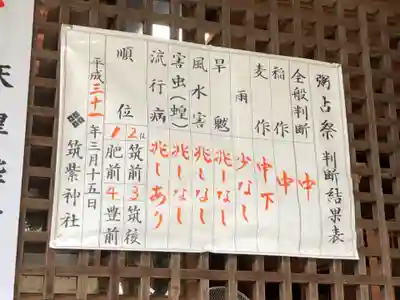 粥占祭 判断結果表
全般判断 中
稲作 中
麦作 中下
雨 少なし
旱魃 兆しなし
風水害 兆しなし
害虫(蝗) 兆しなし
流行病 兆しあり
順位 2位筑前 3筑後
1肥前 4豊前
平成三十一年三月十五日
筑紫神社